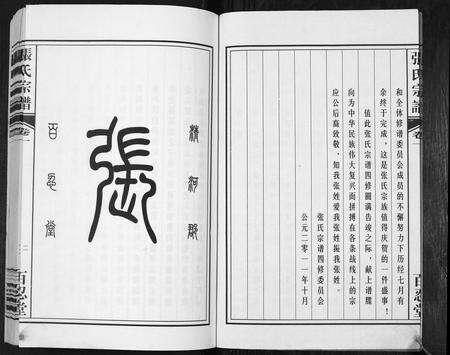 張氏宗譜
卷一
百忍堂
和全体修谱委员会成员的不懈努力下历经七月有
余终于完成，这是张氏宗族值得庆贺的一件盛事！
值此张氏宗谱四修圆满告竣之际，献上谱牒
向为中华民族伟大复兴而拼搏在各条战线上的宗
应公后裔致敬，知我张姓爱我张姓振我张姓。
张氏宗谱四修委员会
公元二零一一年十月
清河郡
張
百忍堂
張氏宗譜
卷一
百忍堂